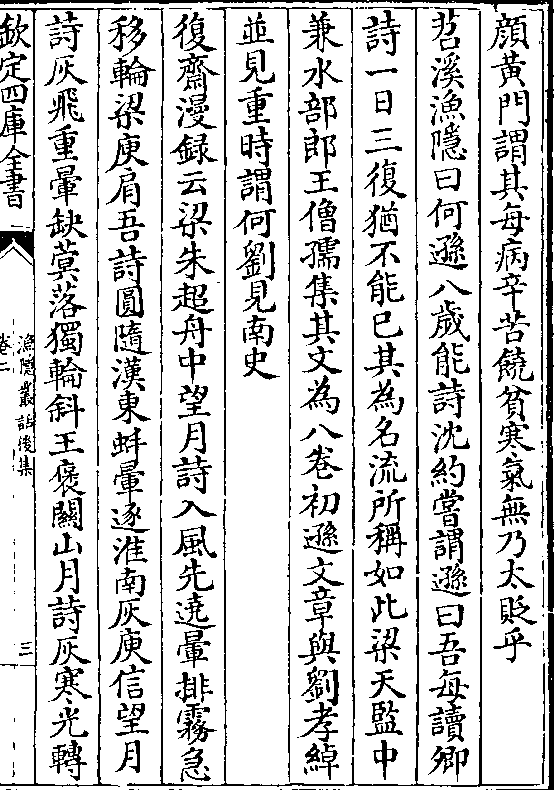 顔黄門謂其每病辛苦饒貧寒氣無乃太貶乎
苕溪漁隱曰何遜八歲能詩沈約嘗謂遜曰吾每讀卿
詩一日三復猶不能已其為名流所稱如此梁天監中
兼水部郎王僧孺集其文為八卷初遜文章與劉孝綽
並見重時謂何劉見南史
復齋漫録云梁朱超舟中望月詩入風先遶暈排霧急
移輪梁庾肩吾詩圓隨漢東蚌暈逐淮南灰庾信望月
詩灰飛重暈缺蓂落獨輪斜王襃關山月詩灰寒光轉
欽定四庫全書
漁隱叢話後集
卷二
三